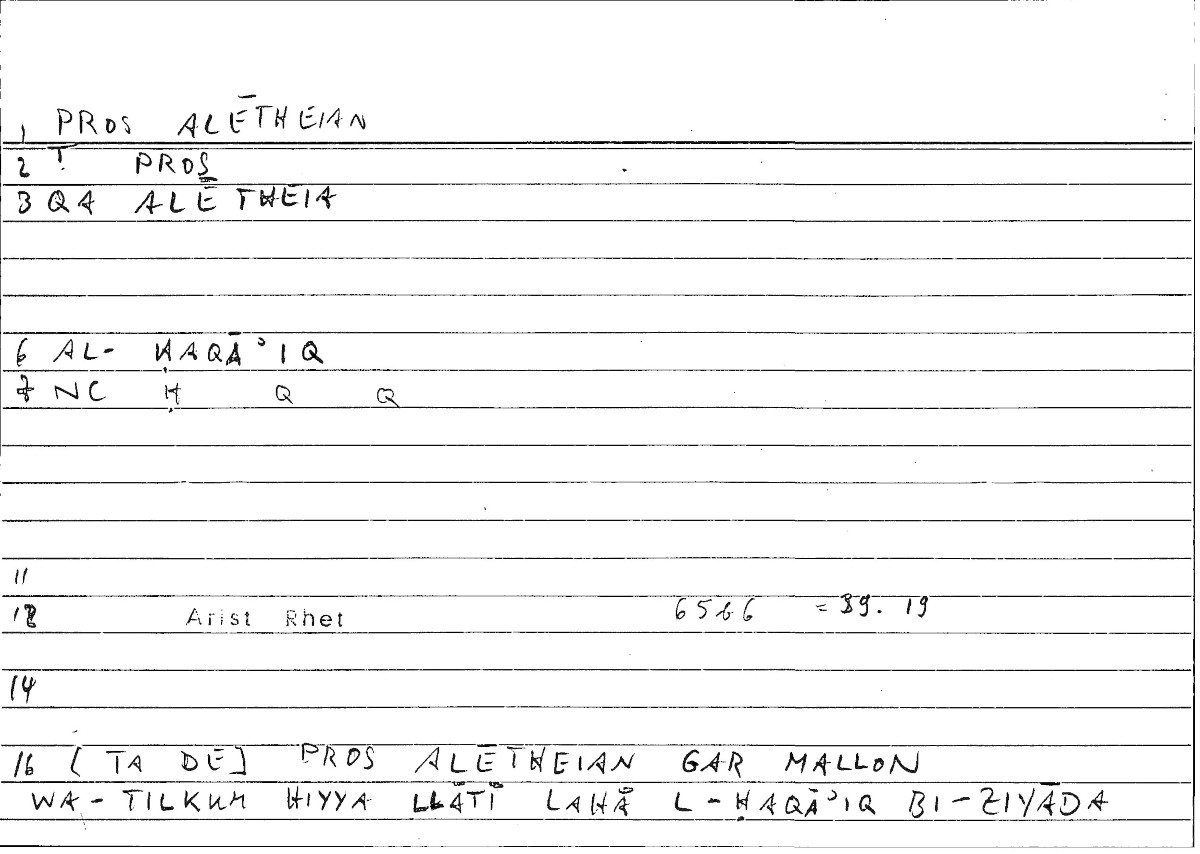 1 PROS ALĒTHEIAN
2 T. PROS
3 QA ALĒTHEIA
6 AL- ḤAQĀʾIQ
7 NC Ḥ Q Q
11
12 Arist Rhet 65b6 = 39.19
14
16 [TA DE] PROS ALĒTHEIAN GAR MALLON
WA-TILKUM HIYYA LLĀTĪ LAHĀ L-ḤAQĀʾIQ BI-ZIYĀDA